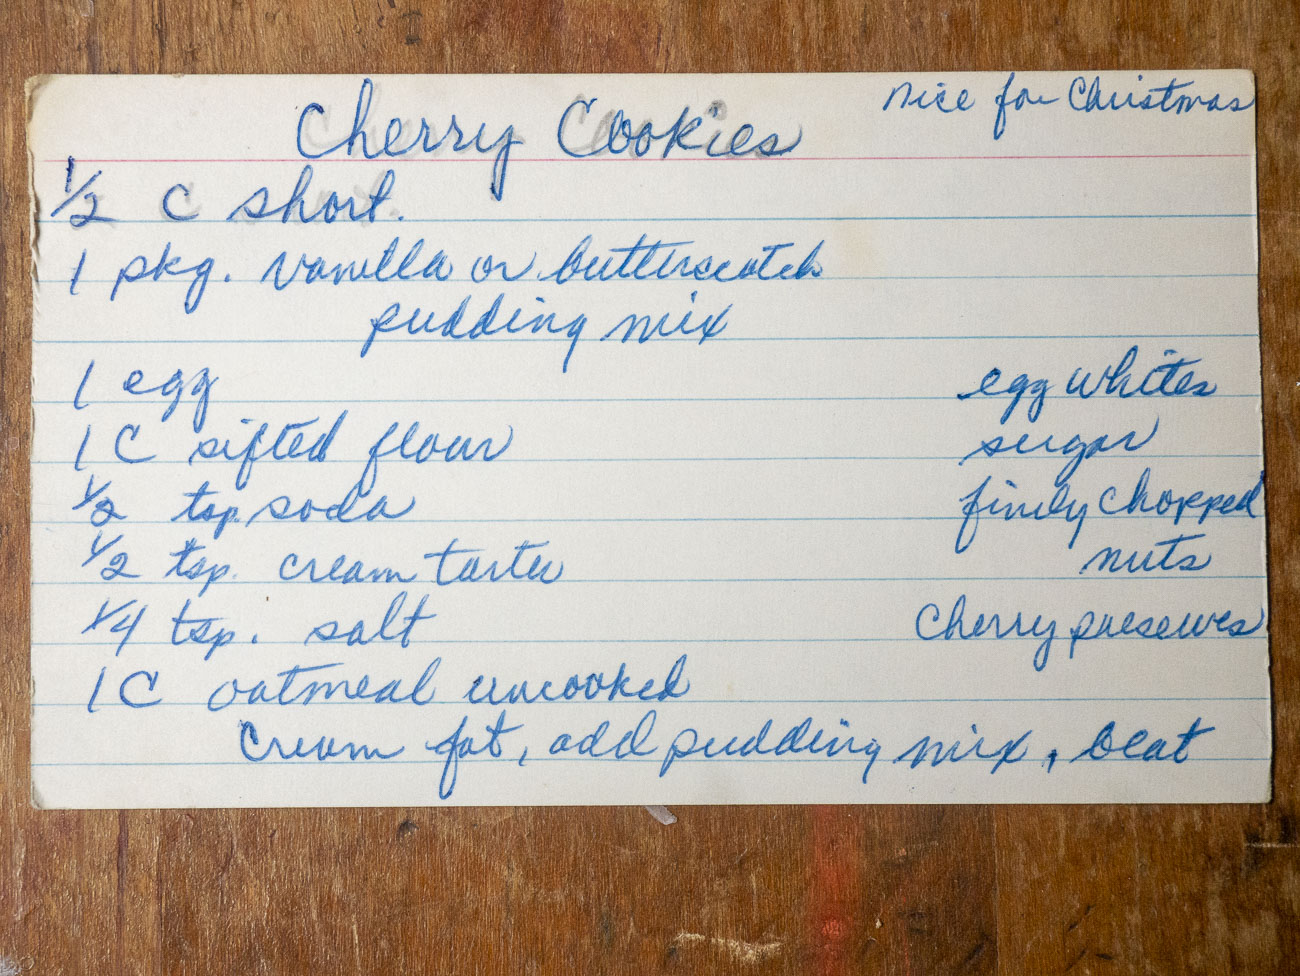 nice for Christmas
Cherry Cookies
1/2 C short.
1 pkg. vanilla or butterscotch
pudding mix
1 egg
1 C sifted flour
1/2 tsp. soda
1/2 tsp. cream tarter
1/4 tsp. salt
1 C oatmeal uncooked
egg whites
sugar
finely chopped
nuts
Cherry preserves
Cream fat, add pudding mix, beat